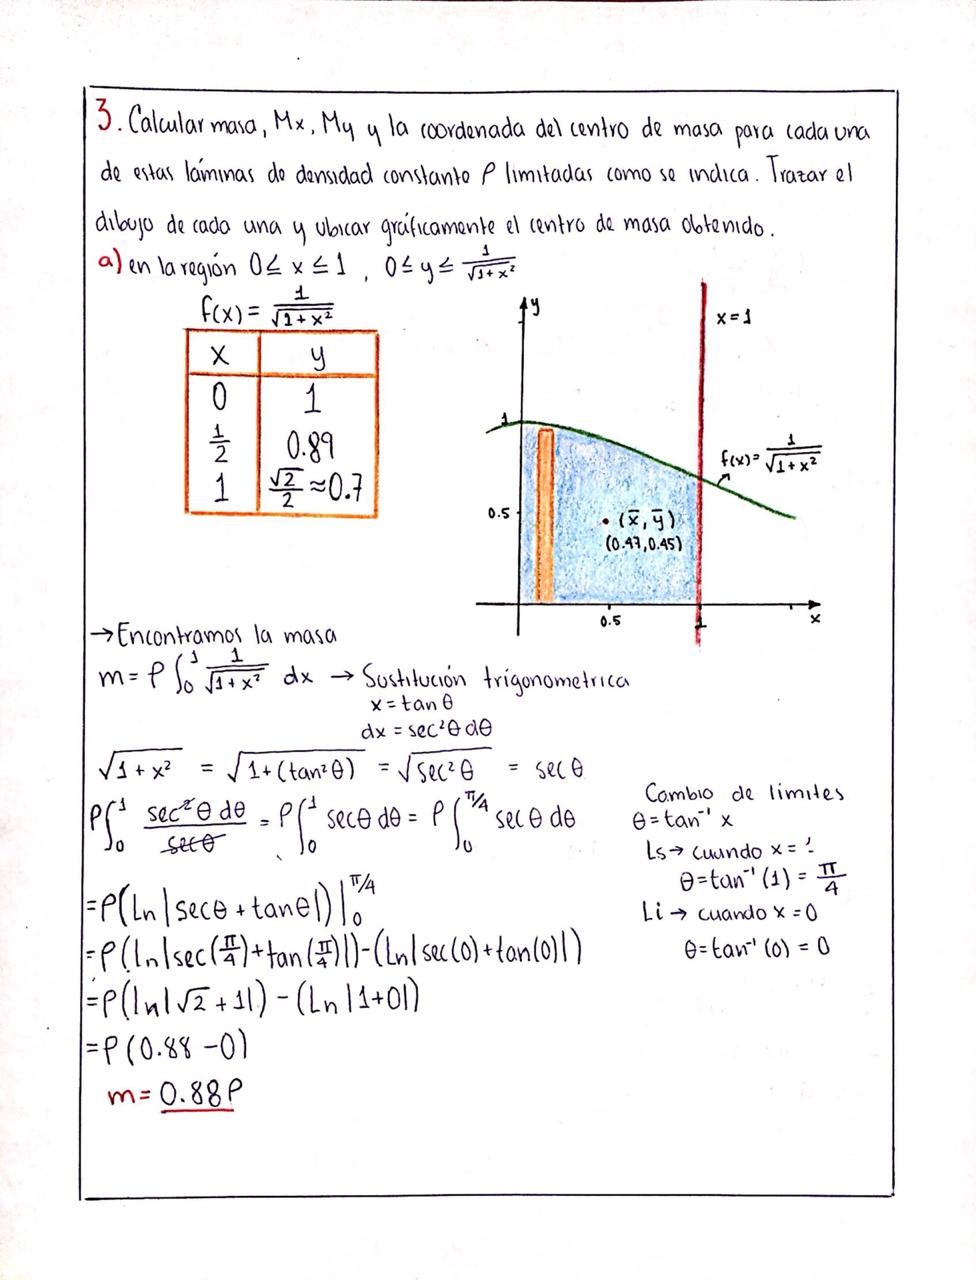 3. Calcular masa, Mx, My y la coordenada del centro de masa para cada una
de estas láminas de densidad constante ρ limitadas como se indica. Trazar el
dibujo de cada una y ubicar gráficamente el centro de masa obtenido.
a) en la región 0 ≤ x ≤ 1 , 0 ≤ y ≤ 1/√(1+x²)
f(x) = 1/√(1+x²)
x y
0 1
1/2 0.89
1 √2/2 ≈ 0.7
y
x = 1
1
f(x) = 1/√(1+x²)
0.5
• (x̄, ȳ)
(0.47, 0.45)
0.5
1
x
→ Encontramos la masa
m = ρ ∫₀¹ 1/√(1+x²) dx → Sustitución trigonometrica
x = tan θ
dx = sec²θ dθ
√(1+x²) = √(1+(tan²θ) = √(sec²θ) = sec θ
ρ∫₀¹ sec²θ dθ/secθ = ρ∫₀¹ secθ dθ = ρ∫₀^(π/4) sec θ dθ
= ρ(Ln|secθ + tanθ|)|₀^(π/4)
= ρ(ln|sec(π/4) + tan(π/4)|) - (Ln|sec(0) + tan(0)|)
= ρ(ln|√2 + 1|) - (Ln|1+0|)
= ρ(0.88 - 0)
m = 0.88ρ
Cambio de limites
θ = tan⁻¹ x
Ls → cuando x =
θ = tan⁻¹(1) = π/4
Li → cuando x = 0
θ = tan⁻¹(0) = 0